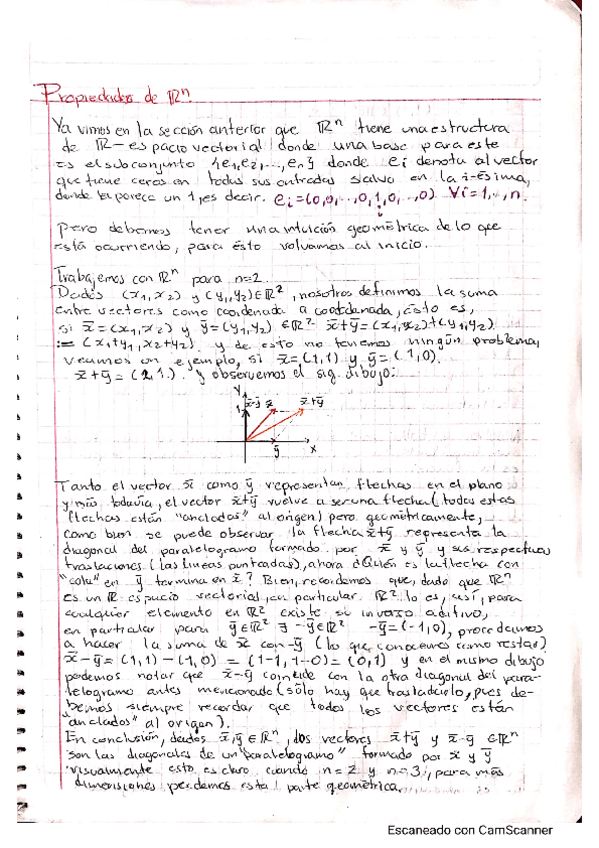 Propiedades de ℝⁿ.
Ya vimos en la sección anterior que ℝⁿ tiene una estructura
de ℝ-espacio vectorial donde una base para este
es el subconjunto {e₁,e₂,...,eₙ} donde eᵢ denota al vector
que tiene ceros en todas sus entradas salvo en la i-ésima,
donde aparece un 1, es decir. eᵢ=(0,0,..,0,1,0,..,0) ∀i=1,..,n.
pero debemos tener una intuición geométrica de lo que
está ocurriendo, para ésto volvamos al inicio.
Trabajemos con ℝⁿ para n=2.
Dados (x₁,x₂) y (y₁,y₂)∈ℝ², nosotros definimos la suma
entre vectores como coordenada a coordenada, ésto es,
si x̄=(x₁,x₂) y ȳ=(y₁,y₂) ∈ℝ² x̄+ȳ=(x₁,x₂)+(y₁,y₂)
:=(x₁+y₁,x₂+y₂) y de esto no tenemos ningún problema,
veamos un ejemplo, si x̄=(1,1) y ȳ=(1,0).
x̄+ȳ=(2,1.) y observemos el sig. dibujo:
y
1 x̄-ȳ x̄ x̄+ȳ
ȳ x
Tanto el vector x̄ como ȳ representan flechas en el plano
y más todavía, el vector x̄+ȳ vuelve a ser una flecha (todas estas
flechas están "ancladas" al origen) pero geométricamente,
como bien se puede observar la flecha x̄+ȳ representa la
diagonal del paralelogramo formado por x̄ y ȳ y sus respectivas
traslaciones (las líneas punteadas), ahora ¿Quién es la flecha con
"cola" en ȳ termina en x̄? Bien, recordemos que, dado que ℝⁿ
es un ℝ espacio vectorial, en particular ℝ² lo es, así, para
cualquier elemento en ℝ² existe su inverso aditivo,
en particular para ȳ∈ℝ² ∃ -ȳ∈ℝ² -ȳ=(-1,0), procedamos
a hacer la suma de x̄ con -ȳ (lo que conocemos como restar)
x̄-ȳ=(1,1)-(1,0)=(1-1,1-0)=(0,1) y en el mismo dibujo
podemos notar que x̄-ȳ coincide con la otra diagonal del para-
lelogramo antes mencionado (sólo hay que trasladarlo, pues de-
bemos siempre recordar que todos los vectores están
"anclados" al origen).
En conclusión, dados x̄,ȳ∈ℝⁿ, los vectores x̄+ȳ y x̄-ȳ ∈ℝⁿ
son las diagonales de un "paralelogramo" formado por x̄ y ȳ
visualmente esto es claro cuando n=2 y n=3, para más
dimensiones perdemos esta parte geométrica.
Escaneado con CamScanner